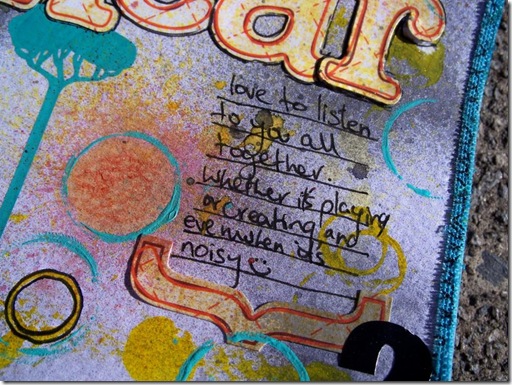 hear
love to listen
to you all
together.
Whether it's playing
or creating and
even when it's
noisy